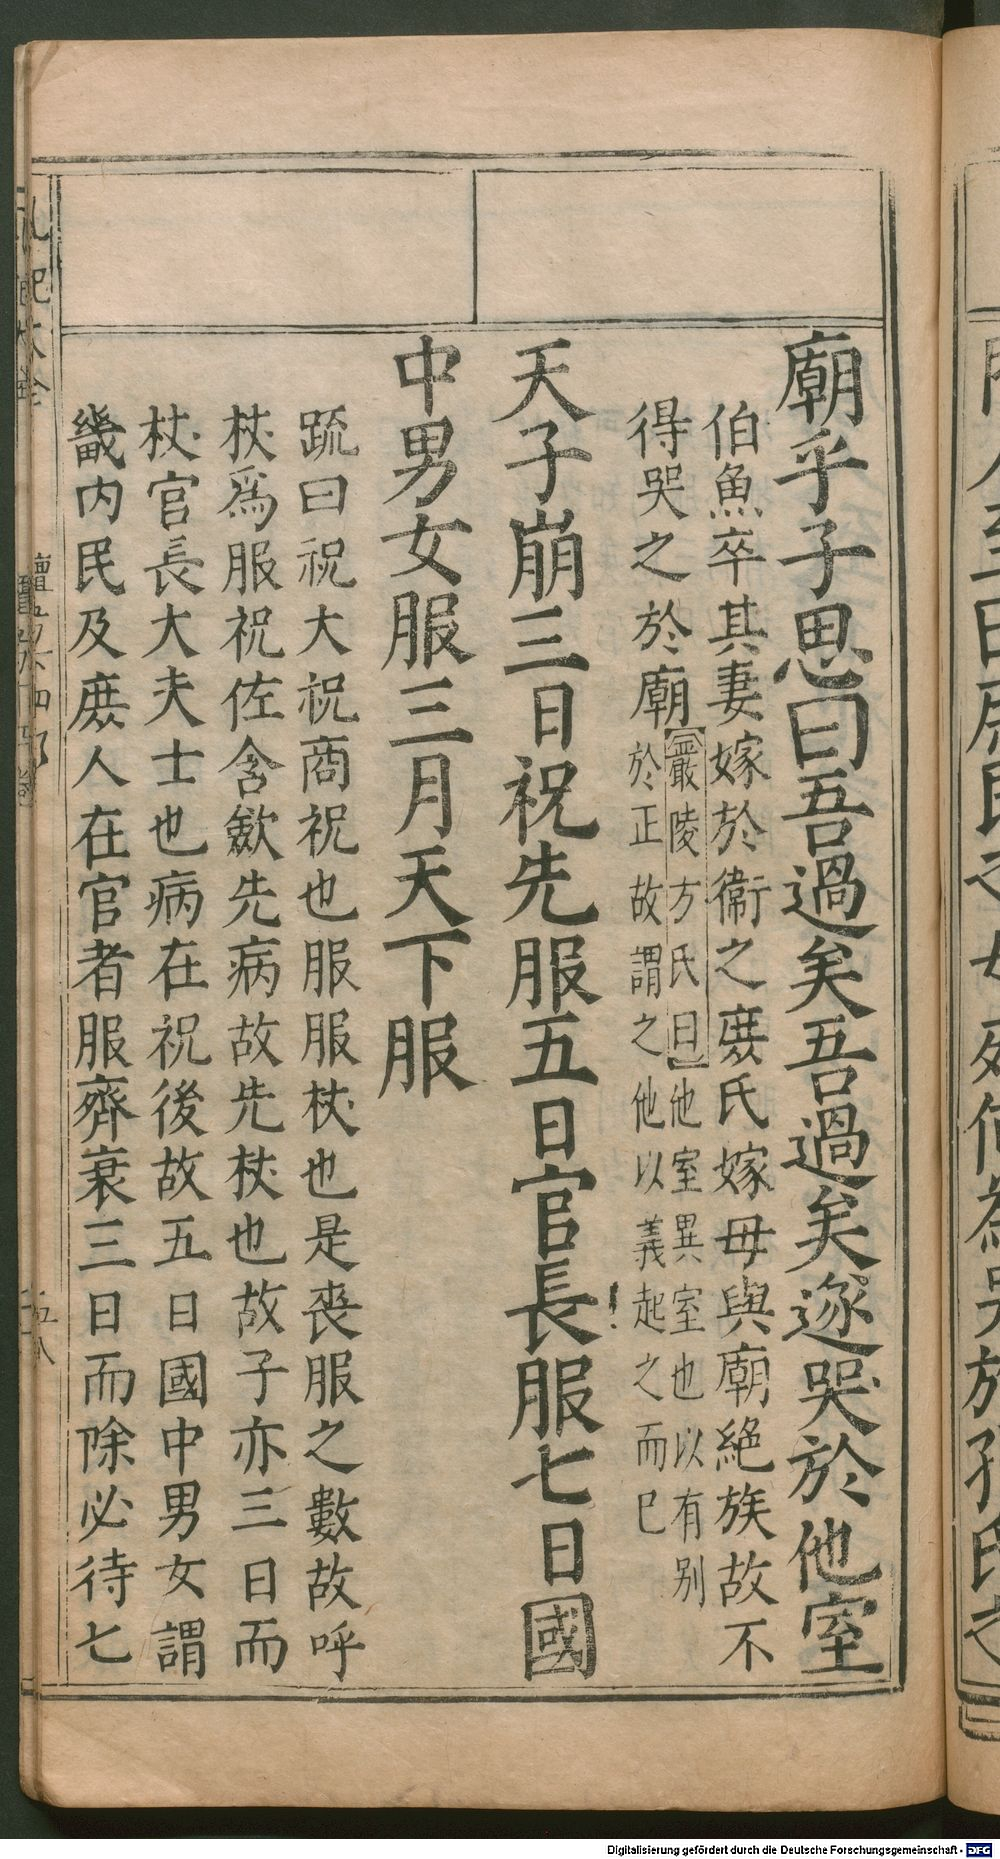 廟乎子思曰吾過矣吾過矣遂哭於他室
伯魚卒其妻嫁於衛之庶氏嫁母與廟絕族故不
得哭之於廟
嚴陵方氏曰他室異室也以有別
於正故謂之他以義起之而已
天子崩三日祝先服五日官長服七日國
中男女服三月天下服
疏曰祝大祝商祝也服服杖也是喪服之數故呼
杖爲服祝佐含斂先病故先杖也故子亦三日而
杖官長大夫士也病在祝後故五日國中男女謂
畿内民及庶人在官者服齊衰三日而除必待七
Digitalisierung gefördert durch die Deutsche Forschungsgemeinschaft - DFG